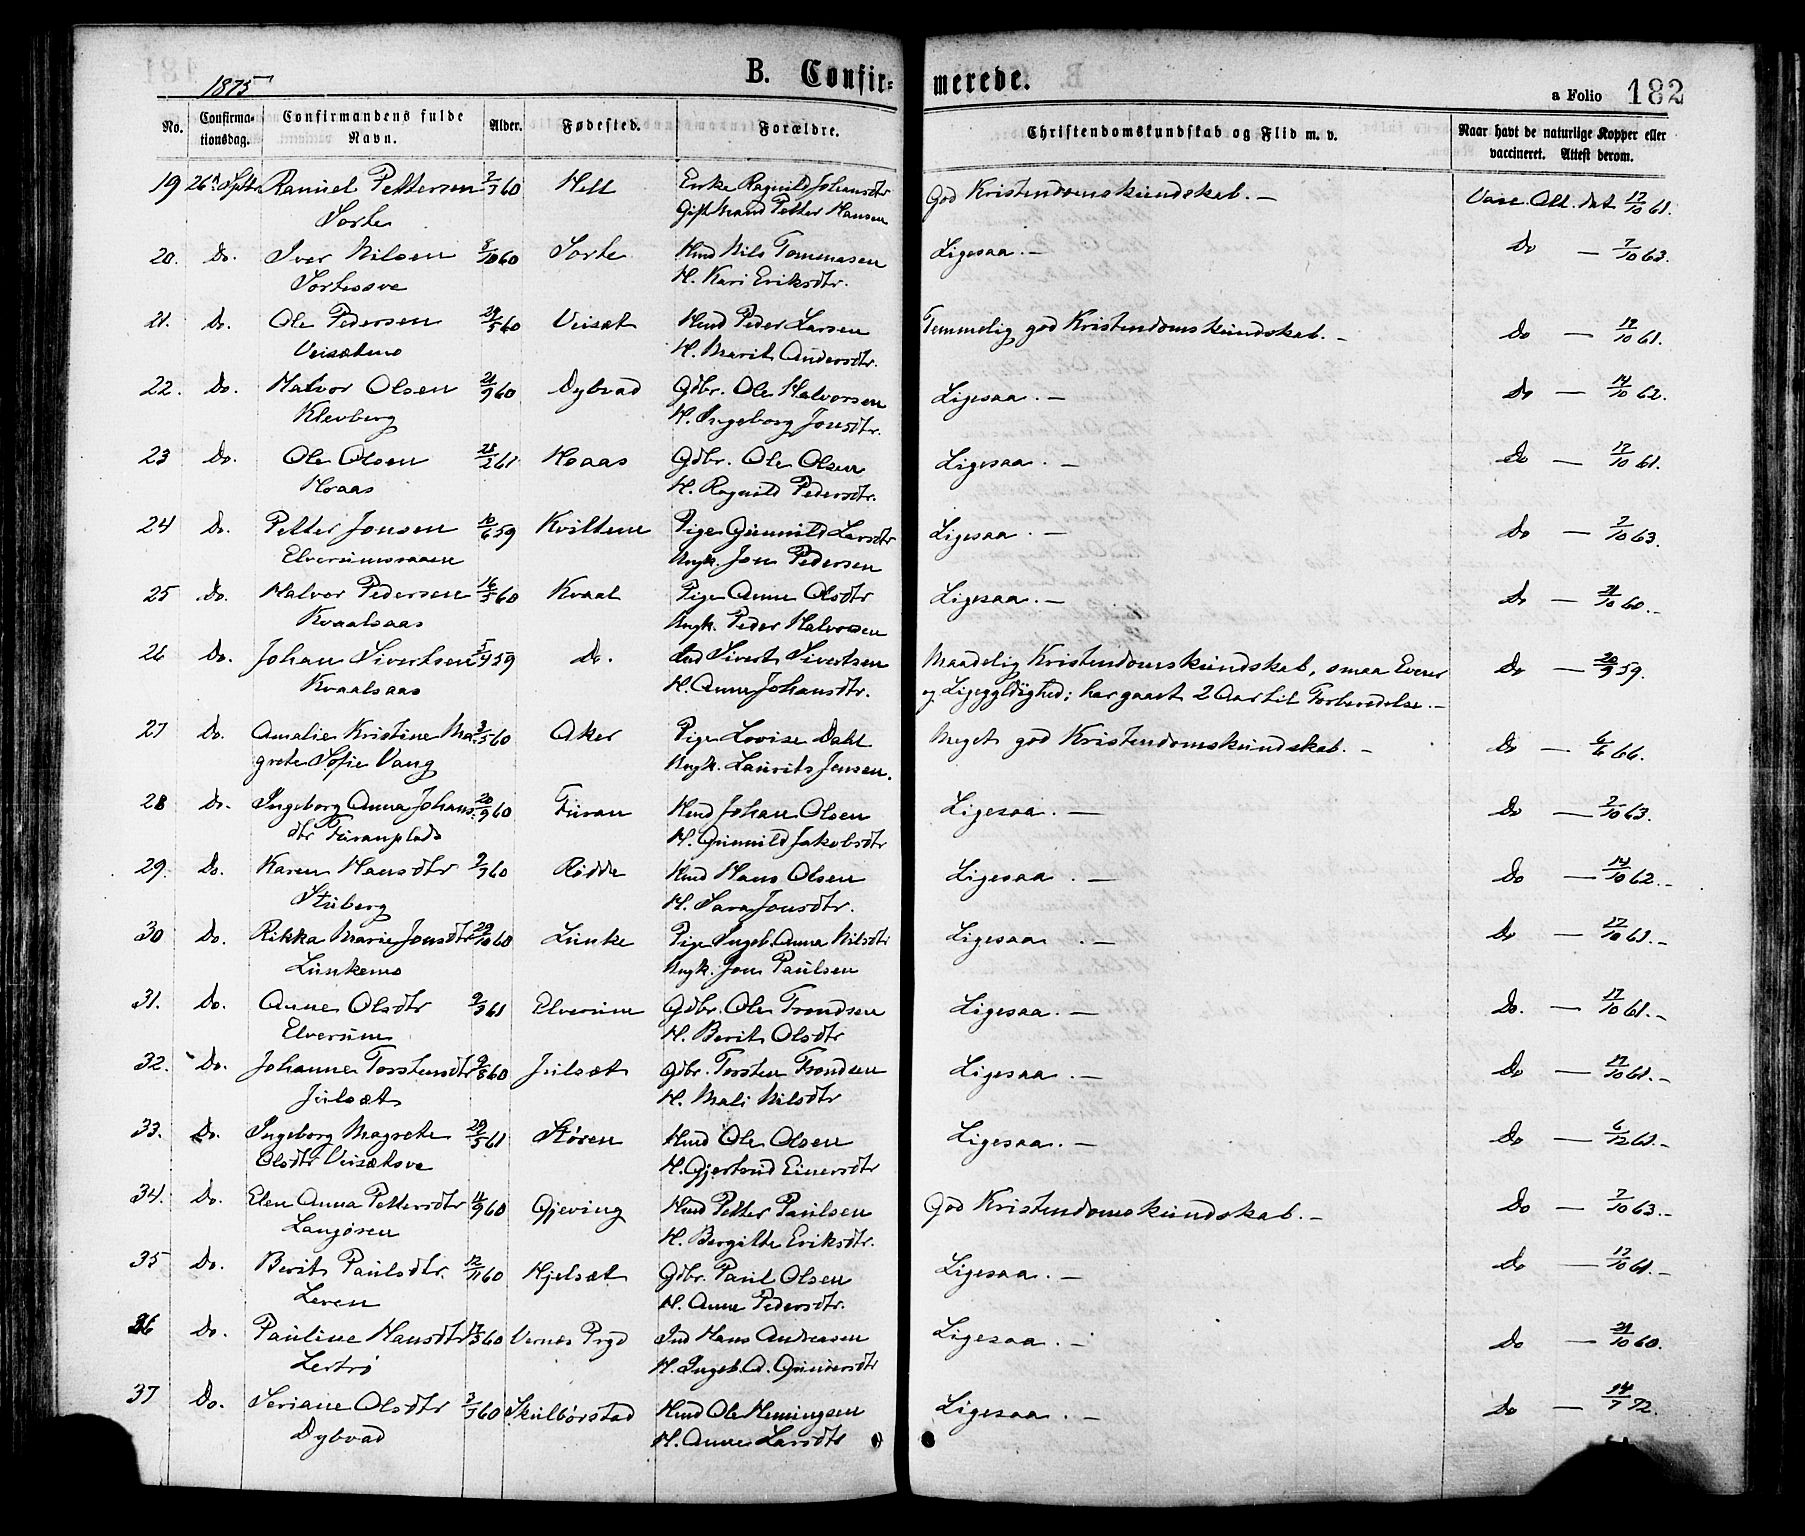 1875
B. Confirmerede.
a Folio 182
No. Confirmationsdag. Confirmandens fulde Navn. Alder. Fødested. Forældre. Christendomskundskab og Flid m. v. Naar havt de naturlige Kopper eller vaccineret. Attest derom.
19 26d. Septr. Pettersen 60 Hell Enke Ragnild Johansdtr God Kristendomskundskab. — Vacc. Att. dat 17/10 61.
Sorte Gift Mand Petter Hansen
20. Do. Iver Nilsen 8/10 60 Sorte Hmd Nils Tommasen Ligesaa. — Do — 7/10 63.
Sorteøve H. Kari Eriksdtr.
21. Do. Ole Pedersen 29/5 60 Veisæt Hmd Peder Larsen Temmelig god Kristendomskundskab. — Do — 17/10 61.
H. Marit Andersdtr.
22. Do. Halvor Olsen 21/9 60 Dybvad Gdbr. Ole Halvorsen Ligesaa. — Do — 14/10 62.
Klevberg H. Ingeborg Jonsdtr.
23 Do. Ole Olsen 28/2 61 Hoaas Gdbr. Ole Olsen Ligesaa. — Do — 17/10 61.
Hoaas H. Ragnild Pedersdtr.
24 Do. Petter Jonsen 10/6 59 Pige Gunnild Larsdtr Ligesaa. — Do — 7/10 63.
Elverumsaasen Ungk. Jon Pedersen
25 Do. Halvor Pedersen 16/5 60 Kvaal Pige Anne Olsdtr Ligesaa. — Do — 21/10 60. —
Kvaalsaas Ungk. Peder Halvorsen
26 Do. Johan Sivertsen 59 Do. Ind Sivert Sivertsen Maadelig Kristendomskundskab, smaa Evner Do — 20/9 59.
Kvaalsaas H. Anne Johansdtr. og Ligegyldighed; har gaaet 2 Aar til Forberedelse. —
27 Do. Amalie Kristine Ma- 3/5 60 Aker Pige Lovise Dahl Meget god Kristendomskundskab. — Do — 6/6 66.
grete Sofie Vang Ungk. Laurits Jensen.
28 Do. Ingeborg Anna Johans- 20/9 60 Furan Hmd Johan Olsen Ligesaa. — Do — 7/10 63.
dtr Furanplads H. Gunnild Jakobsdtr
29. Do. Karen Hansdtr 60 Rødde Hmd Hans Olsen Ligesaa. — Do — 14/10 62. —
Stuberg H. Sara Jonsdtr.
30 Do. Rikka Marie Jonsdtr 29/10 60 Lunke Pige Ingeb. Anna Nilsdtr Ligesaa. — Do — 17/10 61. —
Ungk. Jon Paulsen
31. Do. Anne Olsdtr 61 Elverum Gdbr. Ole Trondsen Ligesaa. — Do. — 17/10 61. —
Elverum H. Berit Olsdtr
32. Do. Johanne Torstensdtr 60 Julsæt Gdbr. Torsten Trondsen Ligesaa. — Do — 17/10 61. —
Julsæt H. Mali Nilsdtr
33. Do. Ingeborg Magrete 29/5 61 Støren Hmd Ole Olsen Ligesaa. — Do — 6/12 61. —
Olsdtr Veisætøve H. Gjertrud Einersdtr
34. Do. Elen Anna Pettersdtr 11/9 60 Gjeving Hmd Petter Paulsen God Kristendomskundskab. — Do — 7/10 63. —
Langøren H. Bergitte Eriksdtr.
35 Do. Berit Paulsdtr. 12/11 60 Hjelsæt Gdbr. Paul Olsen Ligesaa. — Do — 17/10 61. —
Leren H. Anne Pedersdtr.
36 Do. Pauline Hansdtr 60 Vernes Prgd Ind Hans Andreasen Ligesaa. — Do — 21/10 60.
Lertrø H. Ingeb. A. Gunnersdtr
37 Do. Seriane Olsdtr 60 Skulbørstad Hmd Ole Hemingsen Ligesaa. — Do — 24/7 72.
Dybvad H. Anne Larsdtr